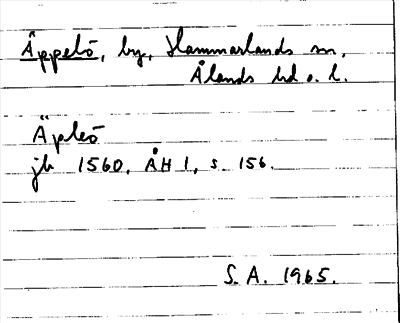 Äppelö, by, Hammarlands sn,
Ålands hd o. l.
Äpleö
jb 1560, ÅH 1, s. 156.
S. A. 1965.